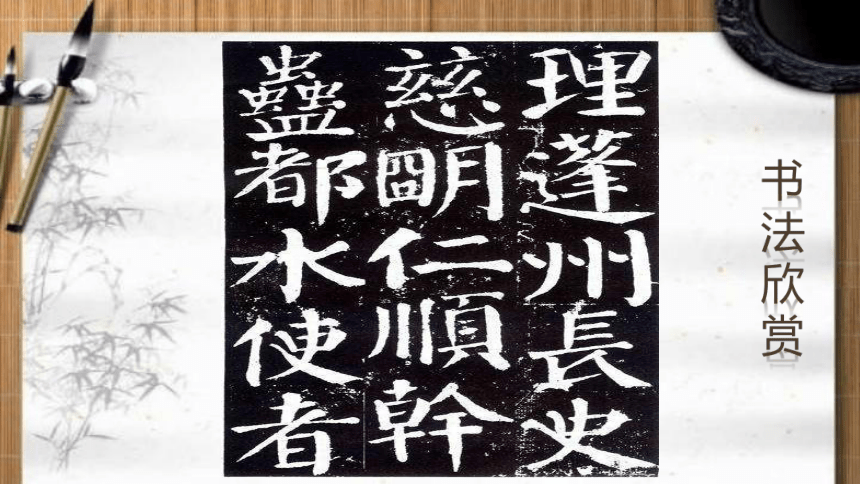 理蓬州長史
慈明仁順幹
蠱都水使者
书法欣赏